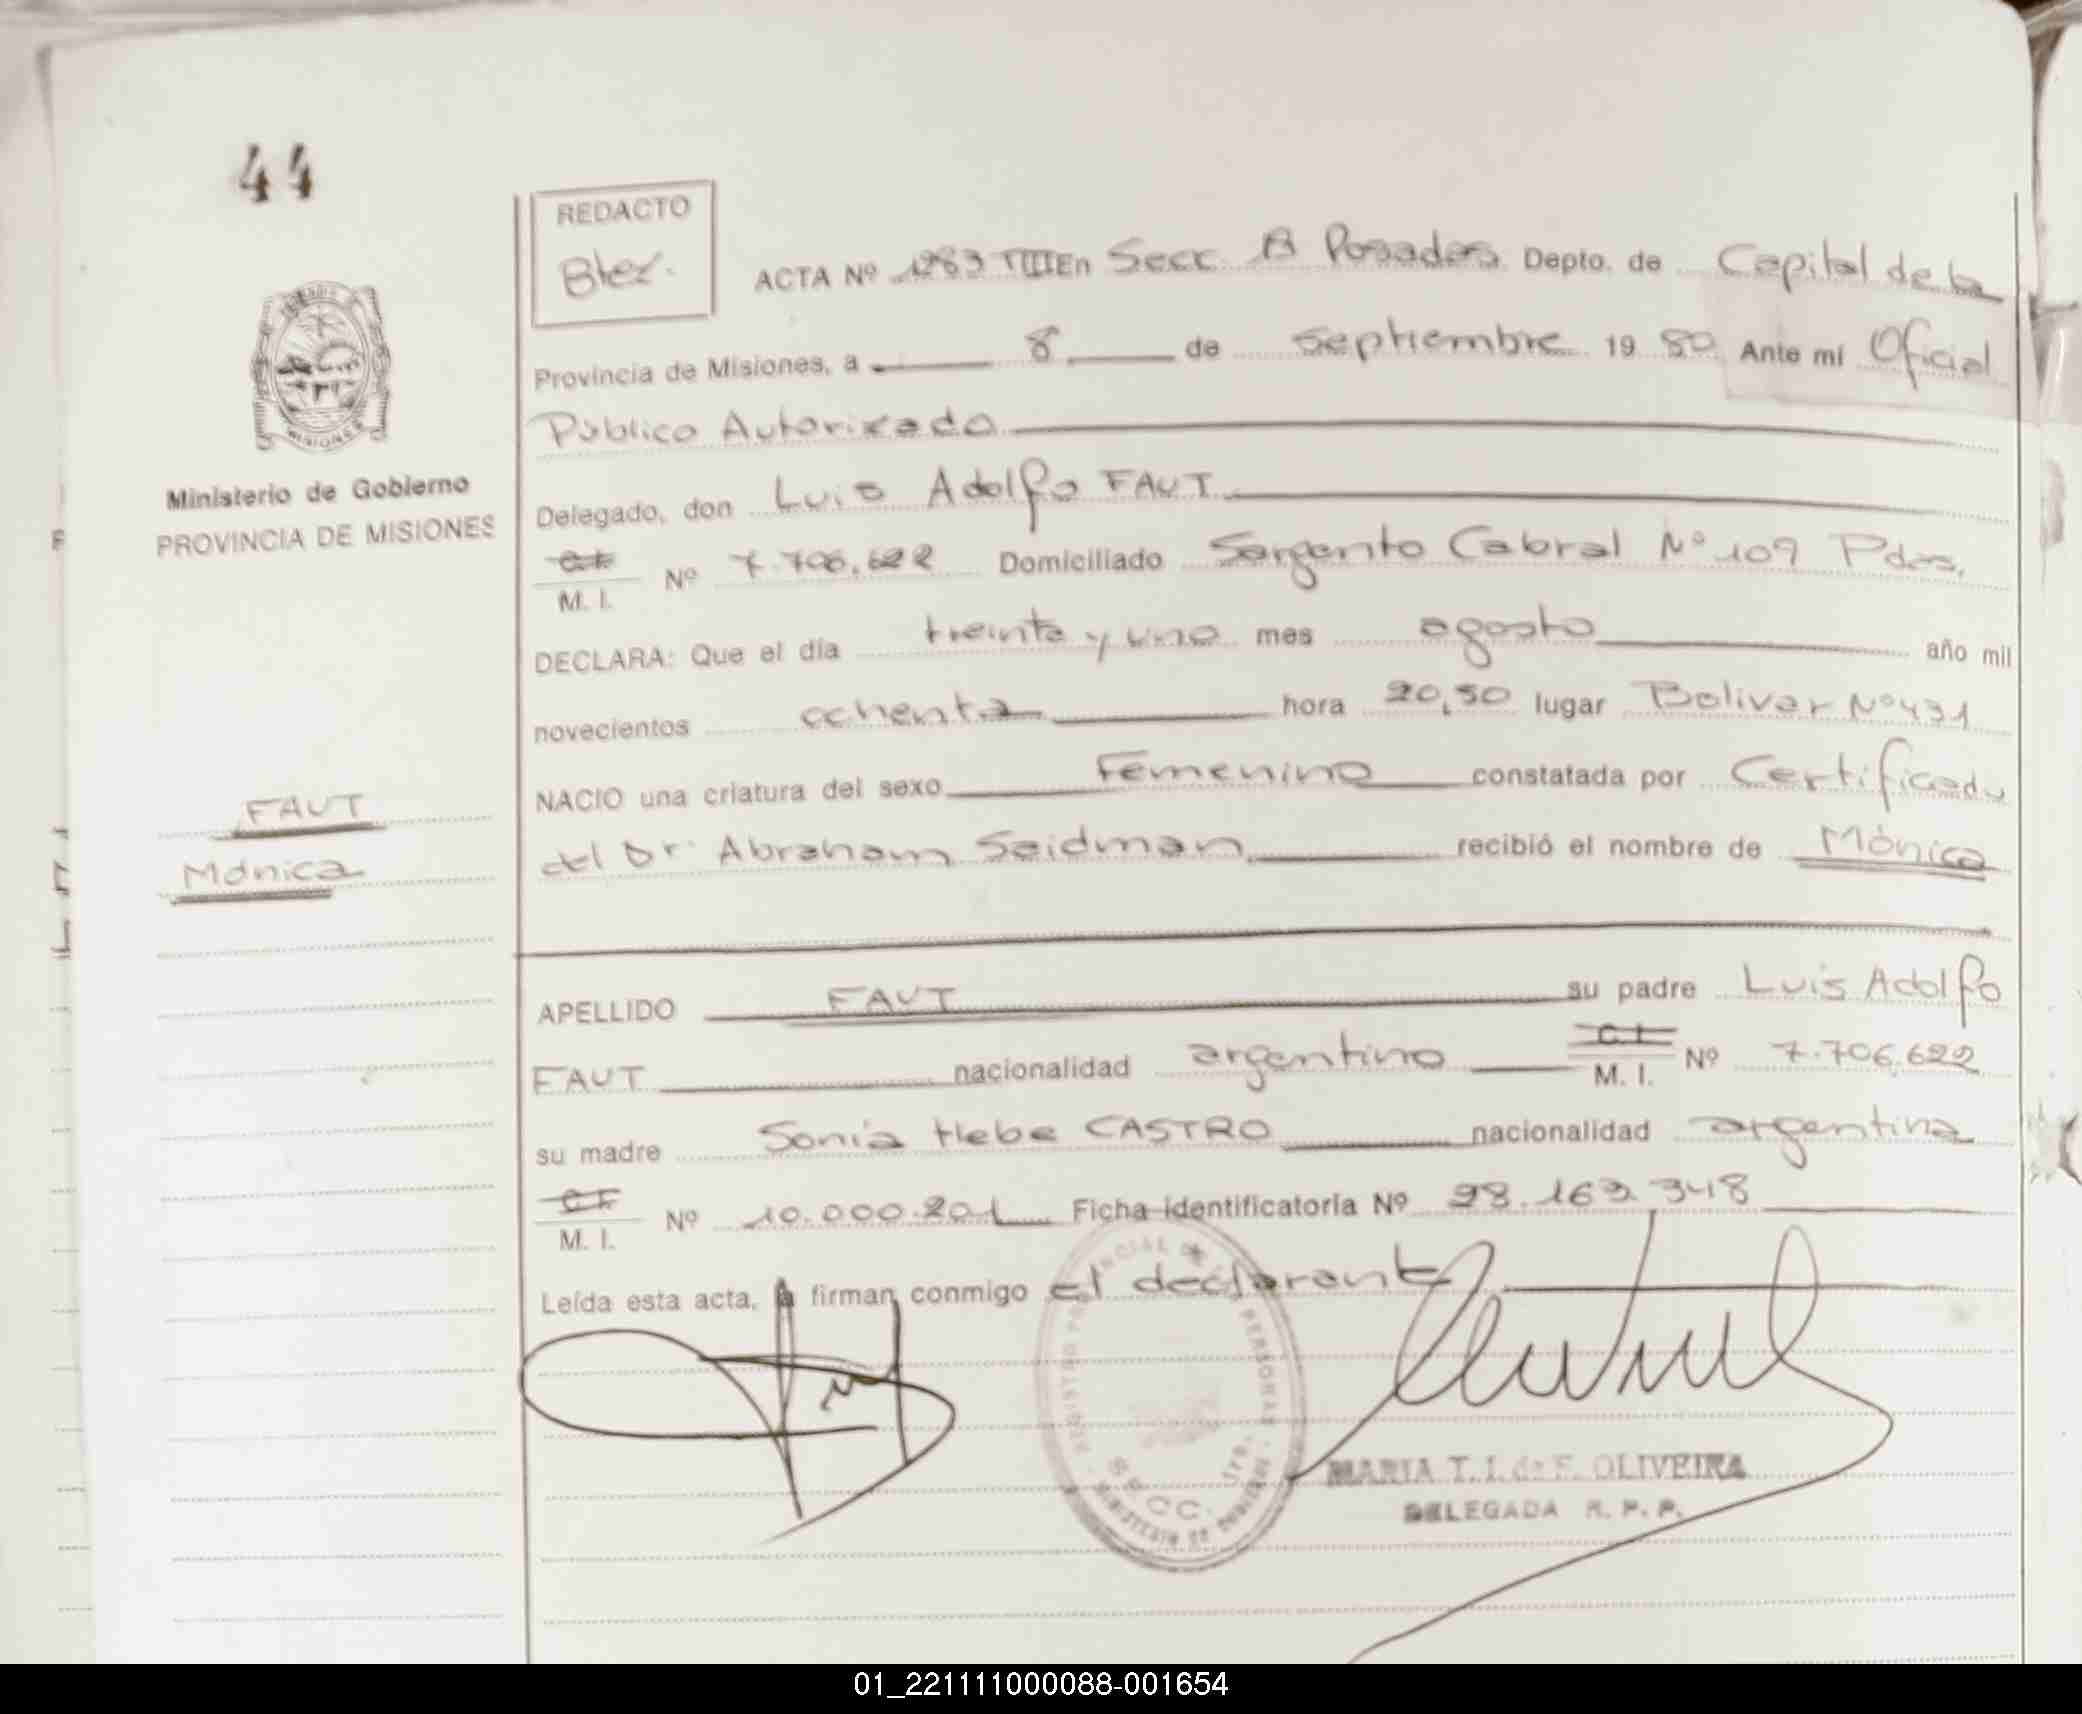 44
REDACTO
Btez.
ACTA Nº 1283 TIII En Secc. B Posadas Depto. de Capital de la
Provincia de Misiones, a 8 de septiembre 19 80 Ante mí Oficial
Público Autorizado
Delegado, don Luis Adolfo FAUT
C.I.
M. I. Nº 7.706.622 Domiciliado Sargento Cabral Nº 109 Pdas.
DECLARA: Que el día treinta y uno mes agosto año mil
novecientos ochenta hora 20,50 lugar Bolivar Nº 431
NACIO una criatura del sexo Femenino constatada por Certificado
del Dr. Abraham Seidman recibió el nombre de Mónica
APELLIDO FAUT su padre Luis Adolfo
FAUT nacionalidad argentino C.I. M. I. Nº 7.706.622
su madre Sonia Hebe CASTRO nacionalidad argentina
C.I.
M. I. Nº 10.000.201 Ficha identificatoria Nº 28.163.348
Leída esta acta, la firman conmigo el declarante
Ministerio de Gobierno
PROVINCIA DE MISIONES
FAUT
Mónica
MISIONES
REGISTRO PROVINCIAL DE LAS PERSONAS
SECC.
MINISTERIO DE GOBIERNO
MARIA T. I. de F. OLIVEIRA
DELEGADA R. P. P.
01_221111000088-001654